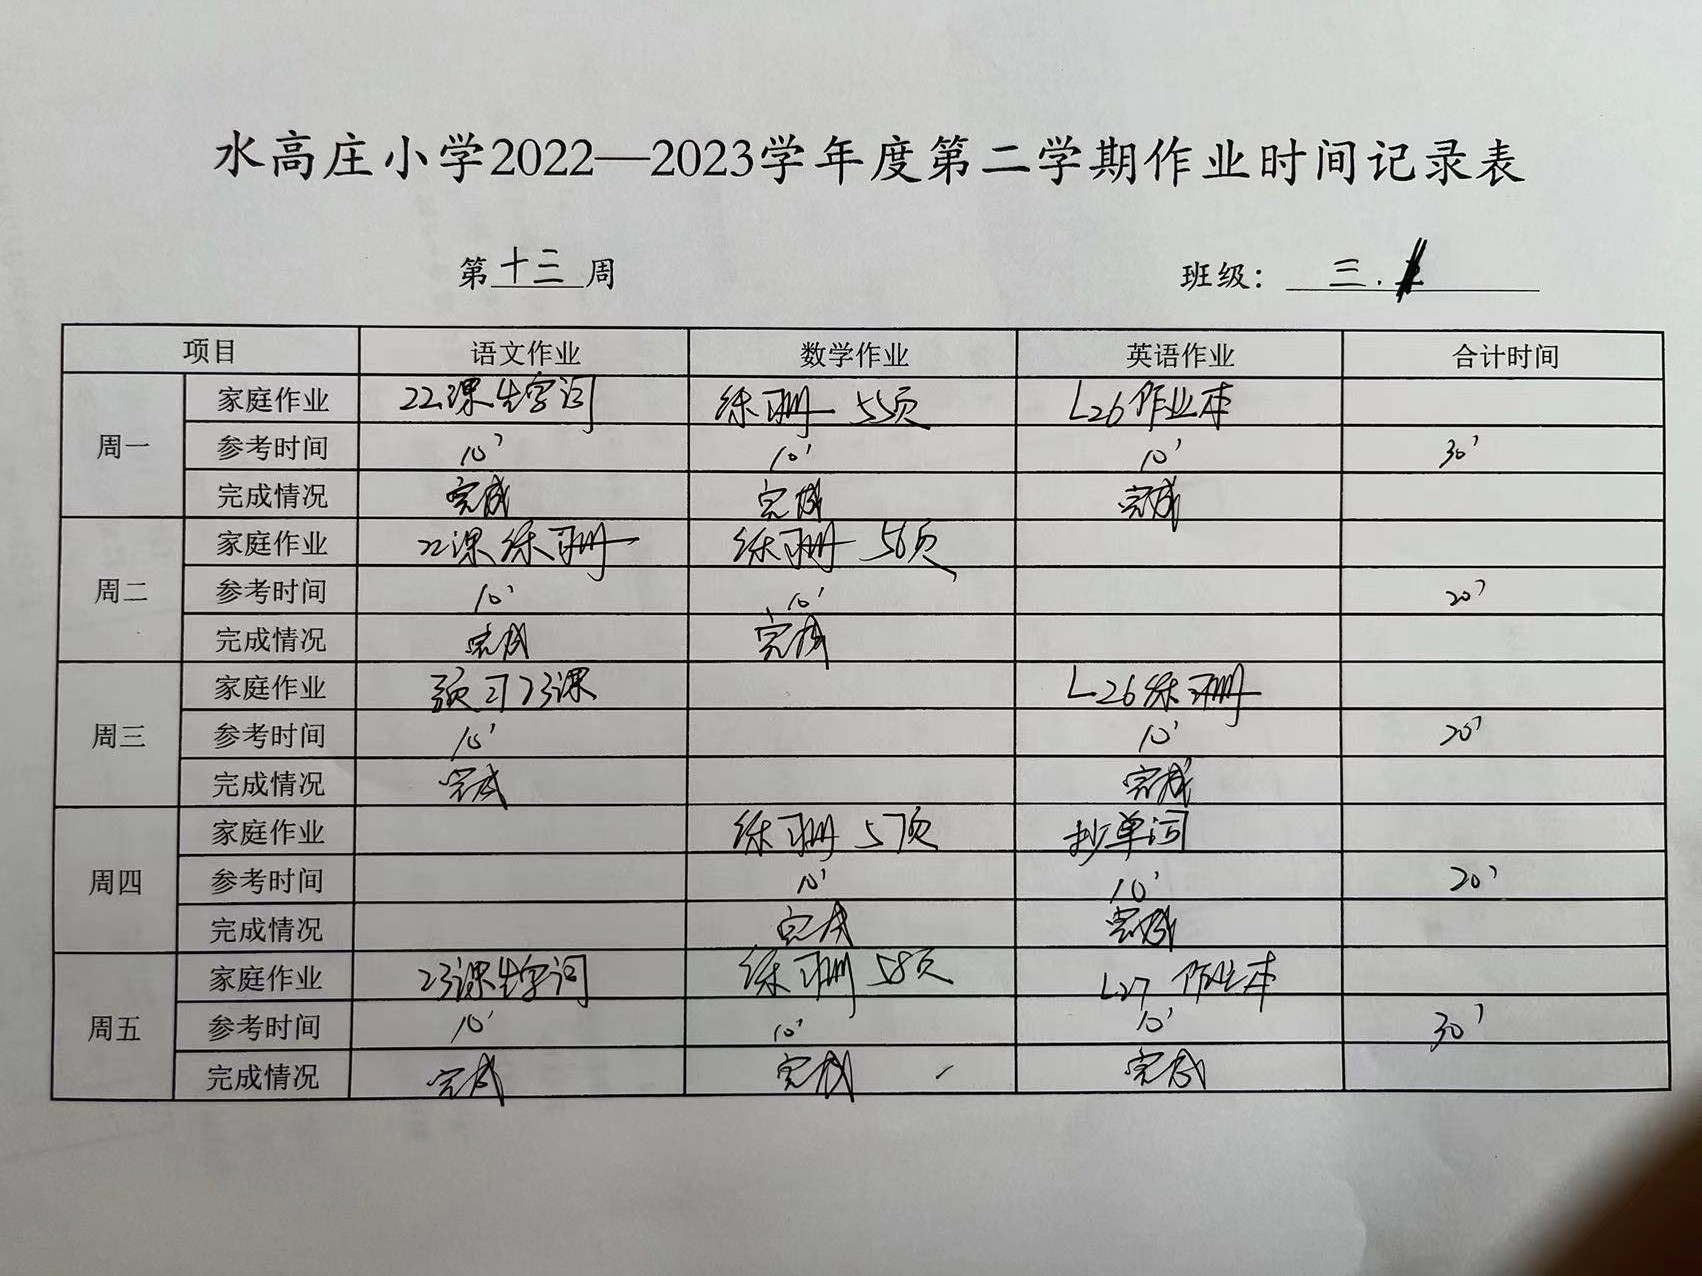 水高庄小学2022—2023学年度第二学期作业时间记录表
第十三周 班级：三.
项目 语文作业 数学作业 英语作业 合计时间
周一
家庭作业 22课生字词 练习册 55页 L26作业本
参考时间 10' 10' 10' 30'
完成情况 完成 完成 完成
周二
家庭作业 22课练习册 练习册 56页
参考时间 10' 10' 20'
完成情况 完成 完成
周三
家庭作业 预习23课 L26练习册
参考时间 10' 10' 20'
完成情况 完成 完成
周四
家庭作业 练习册 57页 抄单词
参考时间 10' 10' 20'
完成情况 完成 完成
周五
家庭作业 23课生字词 练习册 58页 L27 作业本
参考时间 10' 10' 10' 30'
完成情况 完成 完成 完成